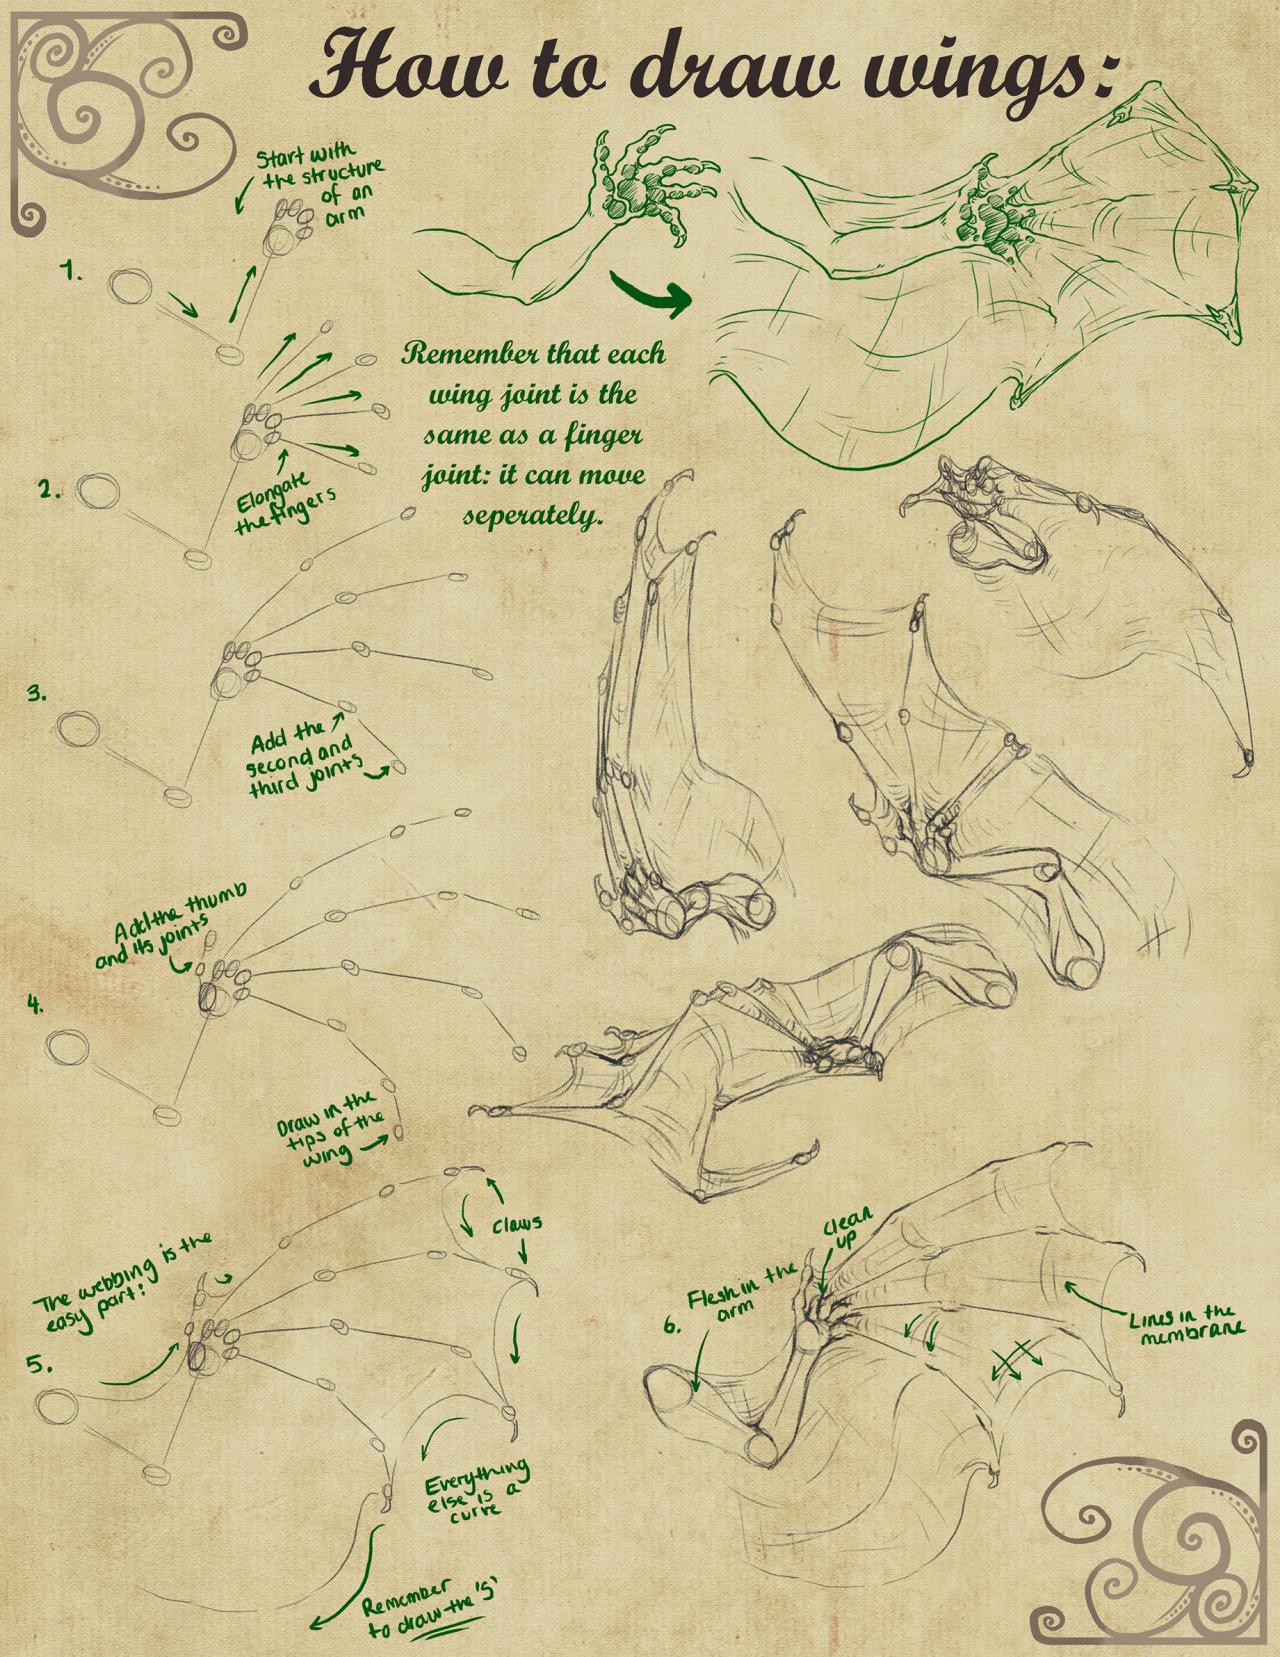 How to draw wings:
Start with
the structure
of an
arm
1.
Remember that each
wing joint is the
same as a finger
joint: it can move
seperately.
2.
Elongate
the fingers
3.
Add the
second and
third joints
Add the thumb
and its joints
4.
Draw in the
tips of the
wing
The webbing is the
easy part!
5.
claws
Everything
else is a
curve
Remember
to draw the 'S'
6.
Flesh in the
arm
clean
up
Lines in the
membrane